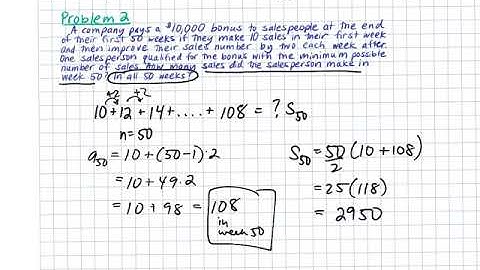 Problem 2
A company pays a $10,000 bonus to salespeople at the end
of their first 50 weeks if they make 10 sales in their first week
and then improve their sales number by two each week after.
One salesperson qualified for the bonus with the minimum possible
number of sales. How many sales did the salesperson make in
week 50? In all 50 weeks?
+2 +2
10+12+14+....+108 = ? S50
n=50
a50 = 10+(50-1)·2
= 10+49·2
= 10+98 = 108
in
week 50
S50 = 50/2 (10+108)
= 25(118)
= 2950